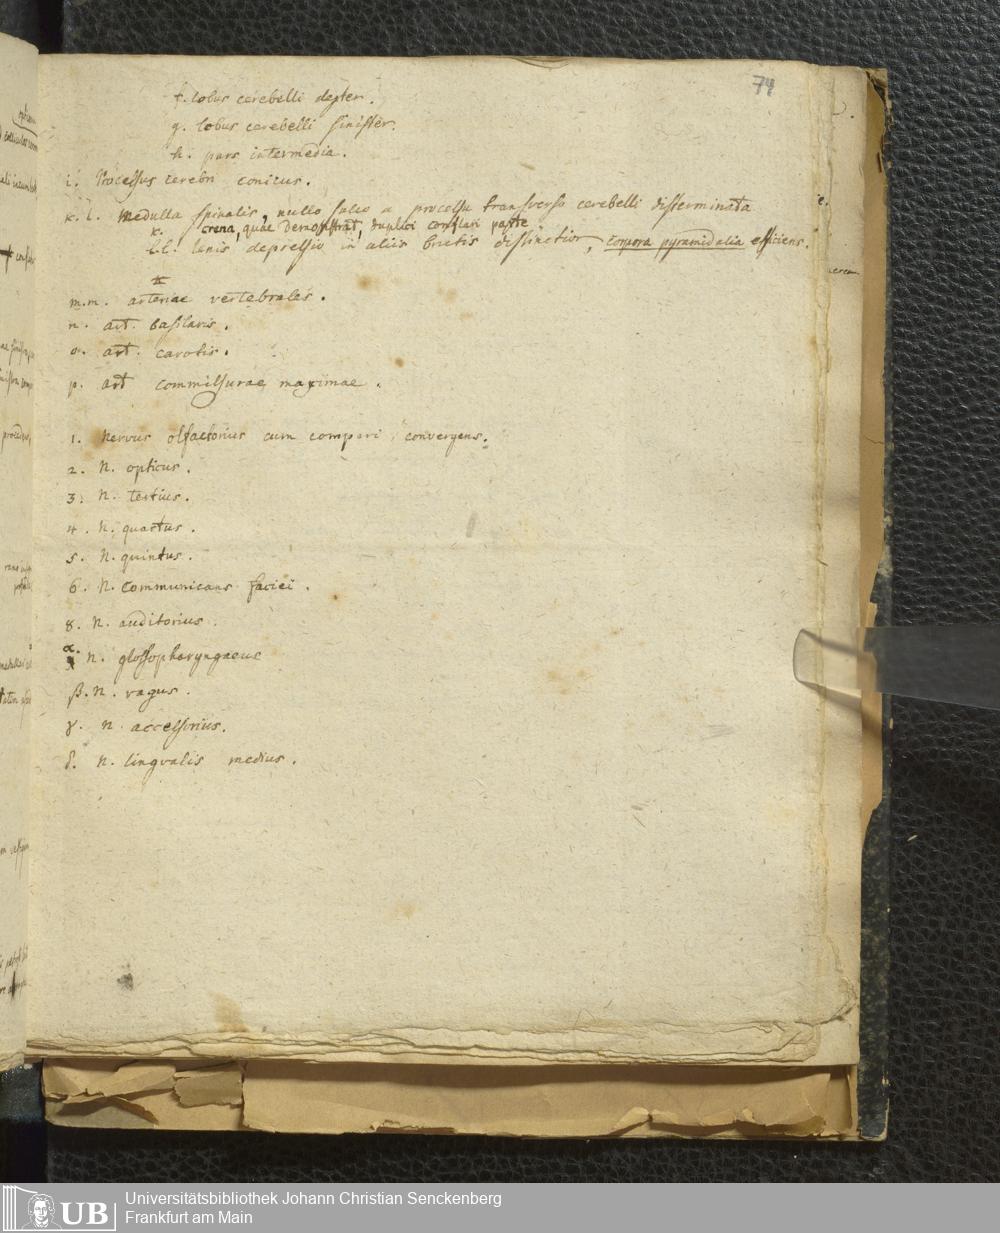 74
f. lobus cerebelli dexter.
g. lobus cerebelli sinister.
h. pars intermedia.
i. Processus cerebri conicus.
k. l. Medulla spinalis, nullo sulco a processu transverso cerebelli disterminata
k. crena, quae demonstrat, duplici conflari parte
l.l. lanis depressio in aliis brutis distinctior, corpora pyramidalia efficiens.
m.m. arteriae vertebrales.
n. art. basilaris.
o. art. carotis.
p. art commissurae maximae.
1. Nervus olfactorius cum compari convergens.
2. N. opticus.
3. N. tertius.
4. N. quartus.
5. N. quintus.
6. N. communicans faciei.
8. N. auditorius.
α. N. glossopharyngaeus
β. N. vagus.
γ. N. accessorius.
δ. N. lingualis medius.
UB
Universitätsbibliothek Johann Christian Senckenberg
Frankfurt am Main